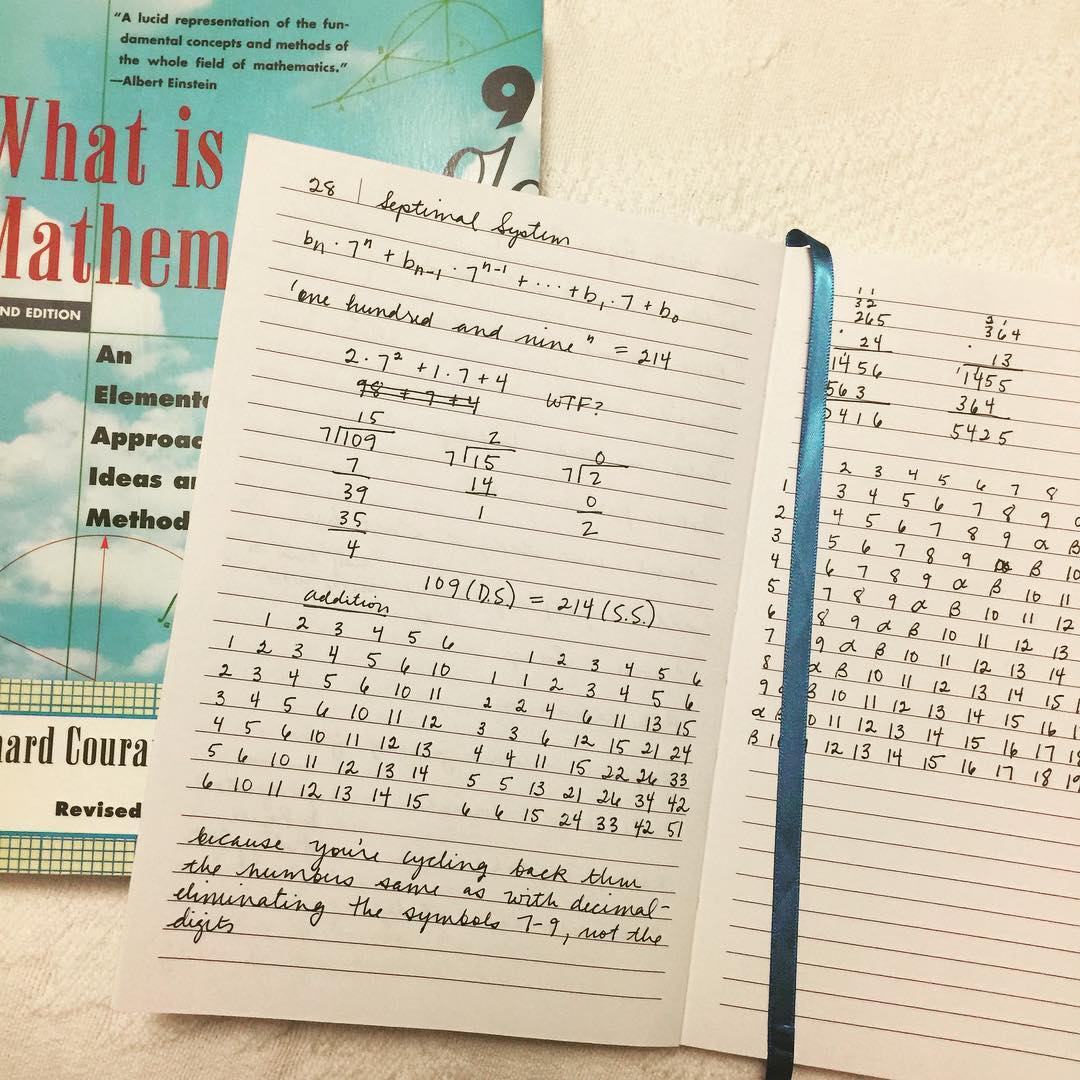 "A lucid representation of the fun-
damental concepts and methods of
the whole field of mathematics."
—Albert Einstein
What is
Mathem
ND EDITION
An
Element
Approac
Ideas a
Method
ard Coura
Revised
9
28 | Septimal System
bn · 7^n + bn-1 · 7^n-1 + ··· + b1 · 7 + b0
"one hundred and nine" = 214
2 · 7² + 1 · 7 + 4
98 + 7 + 4 WTF?
15 2 0
7 109 7 15 7 2
7 14 0
39 1 2
35
4
109 (D.S.) = 214 (S.S.)
addition
1 2 3 4 5 6
1 2 3 4 5 6 10
2 3 4 5 6 10 11
3 4 5 6 10 11 12
4 5 6 10 11 12 13
5 6 10 11 12 13 14
6 10 11 12 13 14 15
1 2 3 4 5 6
1 1 2 3 4 5 6
2 2 4 6 11 13 15
3 3 6 12 15 21 24
4 4 11 15 22 26 33
5 5 13 21 26 34 42
6 6 15 24 33 42 51
because you're cycling back thru
the numbers same as with decimal-
eliminating the symbols 7-9, not the
digits
11
32
265
· 24
1456
563
416
21
364
· 13
1455
364
5425
2 3 4 5 6 7 8
1 3 4 5 6 7 8 9
2 4 5 6 7 8 9 α β
3 5 6 7 8 9 β 10
4 6 7 8 9 α β 10 11
5 7 8 9 α β 10 11 12
6 8 9 α β 10 11 12 13
7 9 α β 10 11 12 13 14
8 α β 10 11 12 13 14 15
9 β 10 11 12 13 14 15 16
α 11 12 13 14 15 16 17 18
β 12 13 14 15 16 17 18 19